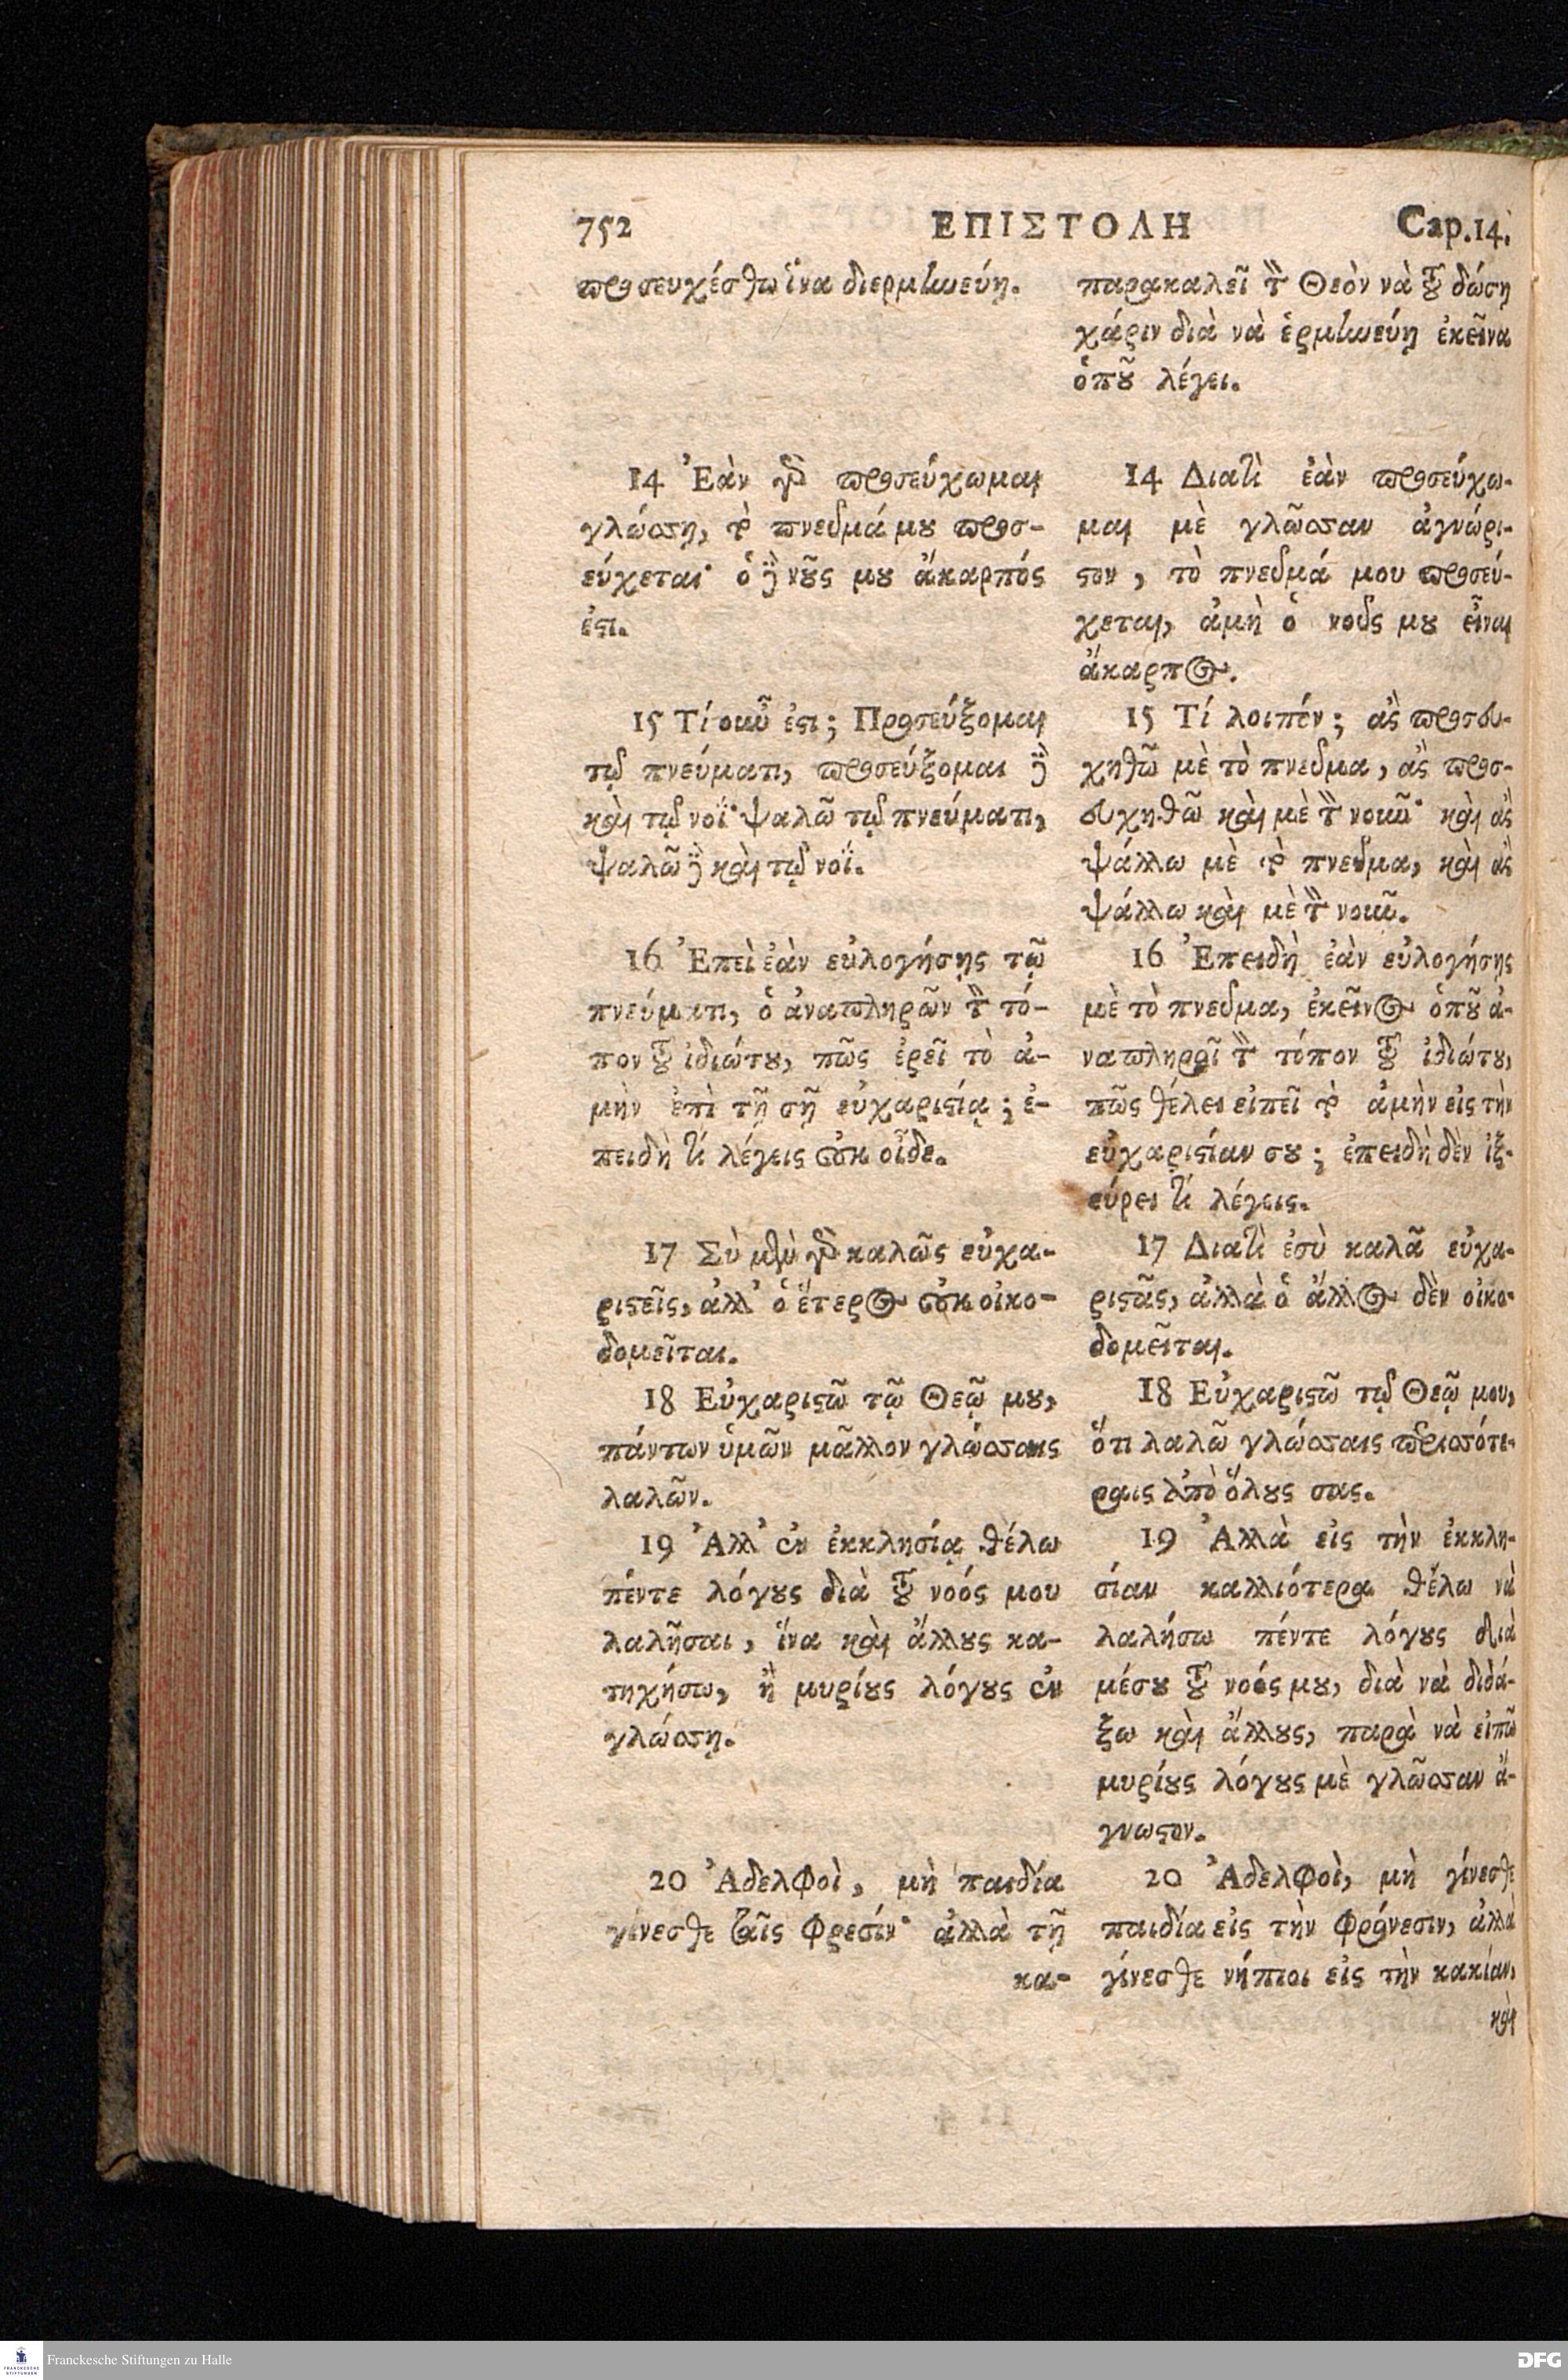 752 ΕΠΙΣΤΟΛΗ Cap.14.
προσευχέσθω ἵνα διερμηνεύῃ.
14 Ἐὰν γὰρ προσεύχωμαι
γλώσσῃ, τὸ πνεῦμά μου προσ-
εύχεται· ὁ δὲ νοῦς μου ἄκαρπός
ἐστι.
15 Τί οὖν ἐστι; Προσεύξομαι
τῷ πνεύματι, προσεύξομαι δὲ
καὶ τῷ νοΐ· ψαλῶ τῷ πνεύματι,
ψαλῶ δὲ καὶ τῷ νοΐ.
16 Ἐπεὶ ἐὰν εὐλογήσῃς τῷ
πνεύματι, ὁ ἀναπληρῶν τὸν τό-
πον τοῦ ἰδιώτου, πῶς ἐρεῖ τὸ ἀ-
μὴν ἐπὶ τῇ σῇ εὐχαριστίᾳ; ἐ-
πειδὴ τί λέγεις οὐκ οἶδε.
17 Σὺ μὲν γὰρ καλῶς εὐχα-
ριστεῖς, ἀλλ' ὁ ἕτερος οὐκ οἰκο-
δομεῖται.
18 Εὐχαριστῶ τῷ Θεῷ μου,
πάντων ὑμῶν μᾶλλον γλώσσαις
λαλῶν.
19 Ἀλλ' ἐν ἐκκλησίᾳ θέλω
πέντε λόγους διὰ τοῦ νοός μου
λαλῆσαι, ἵνα καὶ ἄλλους κα-
τηχήσω, ἢ μυρίους λόγους ἐν
γλώσσῃ.
20 Ἀδελφοὶ, μὴ παιδία
γίνεσθε ταῖς φρεσίν· ἀλλὰ τῇ
κα-
παρακαλεῖ τὸν Θεὸν νὰ τοῦ δώσῃ
χάριν διὰ νὰ ἑρμηνεύῃ ἐκεῖνα
ὁποῦ λέγει.
14 Διατὶ ἐὰν προσεύχω-
μαι μὲ γλῶσσαν ἀγνώρι-
στον, τὸ πνεῦμά μου προσεύ-
χεται, ἀμὴ ὁ νοῦς μου εἶναι
ἄκαρπος.
15 Τί λοιπόν; ἂς προσευ-
χηθῶ μὲ τὸ πνεῦμα, ἂς προσ-
ευχηθῶ καὶ μὲ τὸν νοῦν· καὶ ἂς
ψάλλω μὲ τὸ πνεῦμα, καὶ ἂς
ψάλλω καὶ μὲ τὸν νοῦν.
16 Ἐπειδὴ ἐὰν εὐλογήσῃς
μὲ τὸ πνεῦμα, ἐκεῖνος ὁποῦ ἀ-
ναπληροῖ τὸν τόπον τοῦ ἰδιώτου,
πῶς θέλει εἰπεῖ τὸ ἀμὴν εἰς τὴν
εὐχαριστίαν σου; ἐπειδὴ δὲν ἰξ-
εύρει τί λέγεις.
17 Διατὶ ἐσὺ καλᾶ εὐχα-
ριστᾶς, ἀλλὰ ὁ ἄλλος δὲν οἰκο-
δομεῖται.
18 Εὐχαριστῶ τῷ Θεῷ μου,
ὅτι λαλῶ γλώσσαις περισσότε-
ραις ἀπὸ ὅλους σας.
19 Ἀλλὰ εἰς τὴν ἐκκλη-
σίαν καλλιότερα θέλω νὰ
λαλήσω πέντε λόγους διὰ
μέσου τοῦ νοός μου, διὰ νὰ διδά-
ξω καὶ ἄλλους, παρὰ νὰ εἰπῶ
μυρίους λόγους μὲ γλῶσσαν ἄ-
γνωστον.
20 Ἀδελφοὶ, μὴ γίνεσθε
παιδία εἰς τὴν φρόνεσιν, ἀλλὰ
γίνεσθε νήπιοι εἰς τὴν κακίαν,
καὶ
Franckesche Stiftungen zu Halle
DFG
FRANCKESCHE
STIFTUNGEN